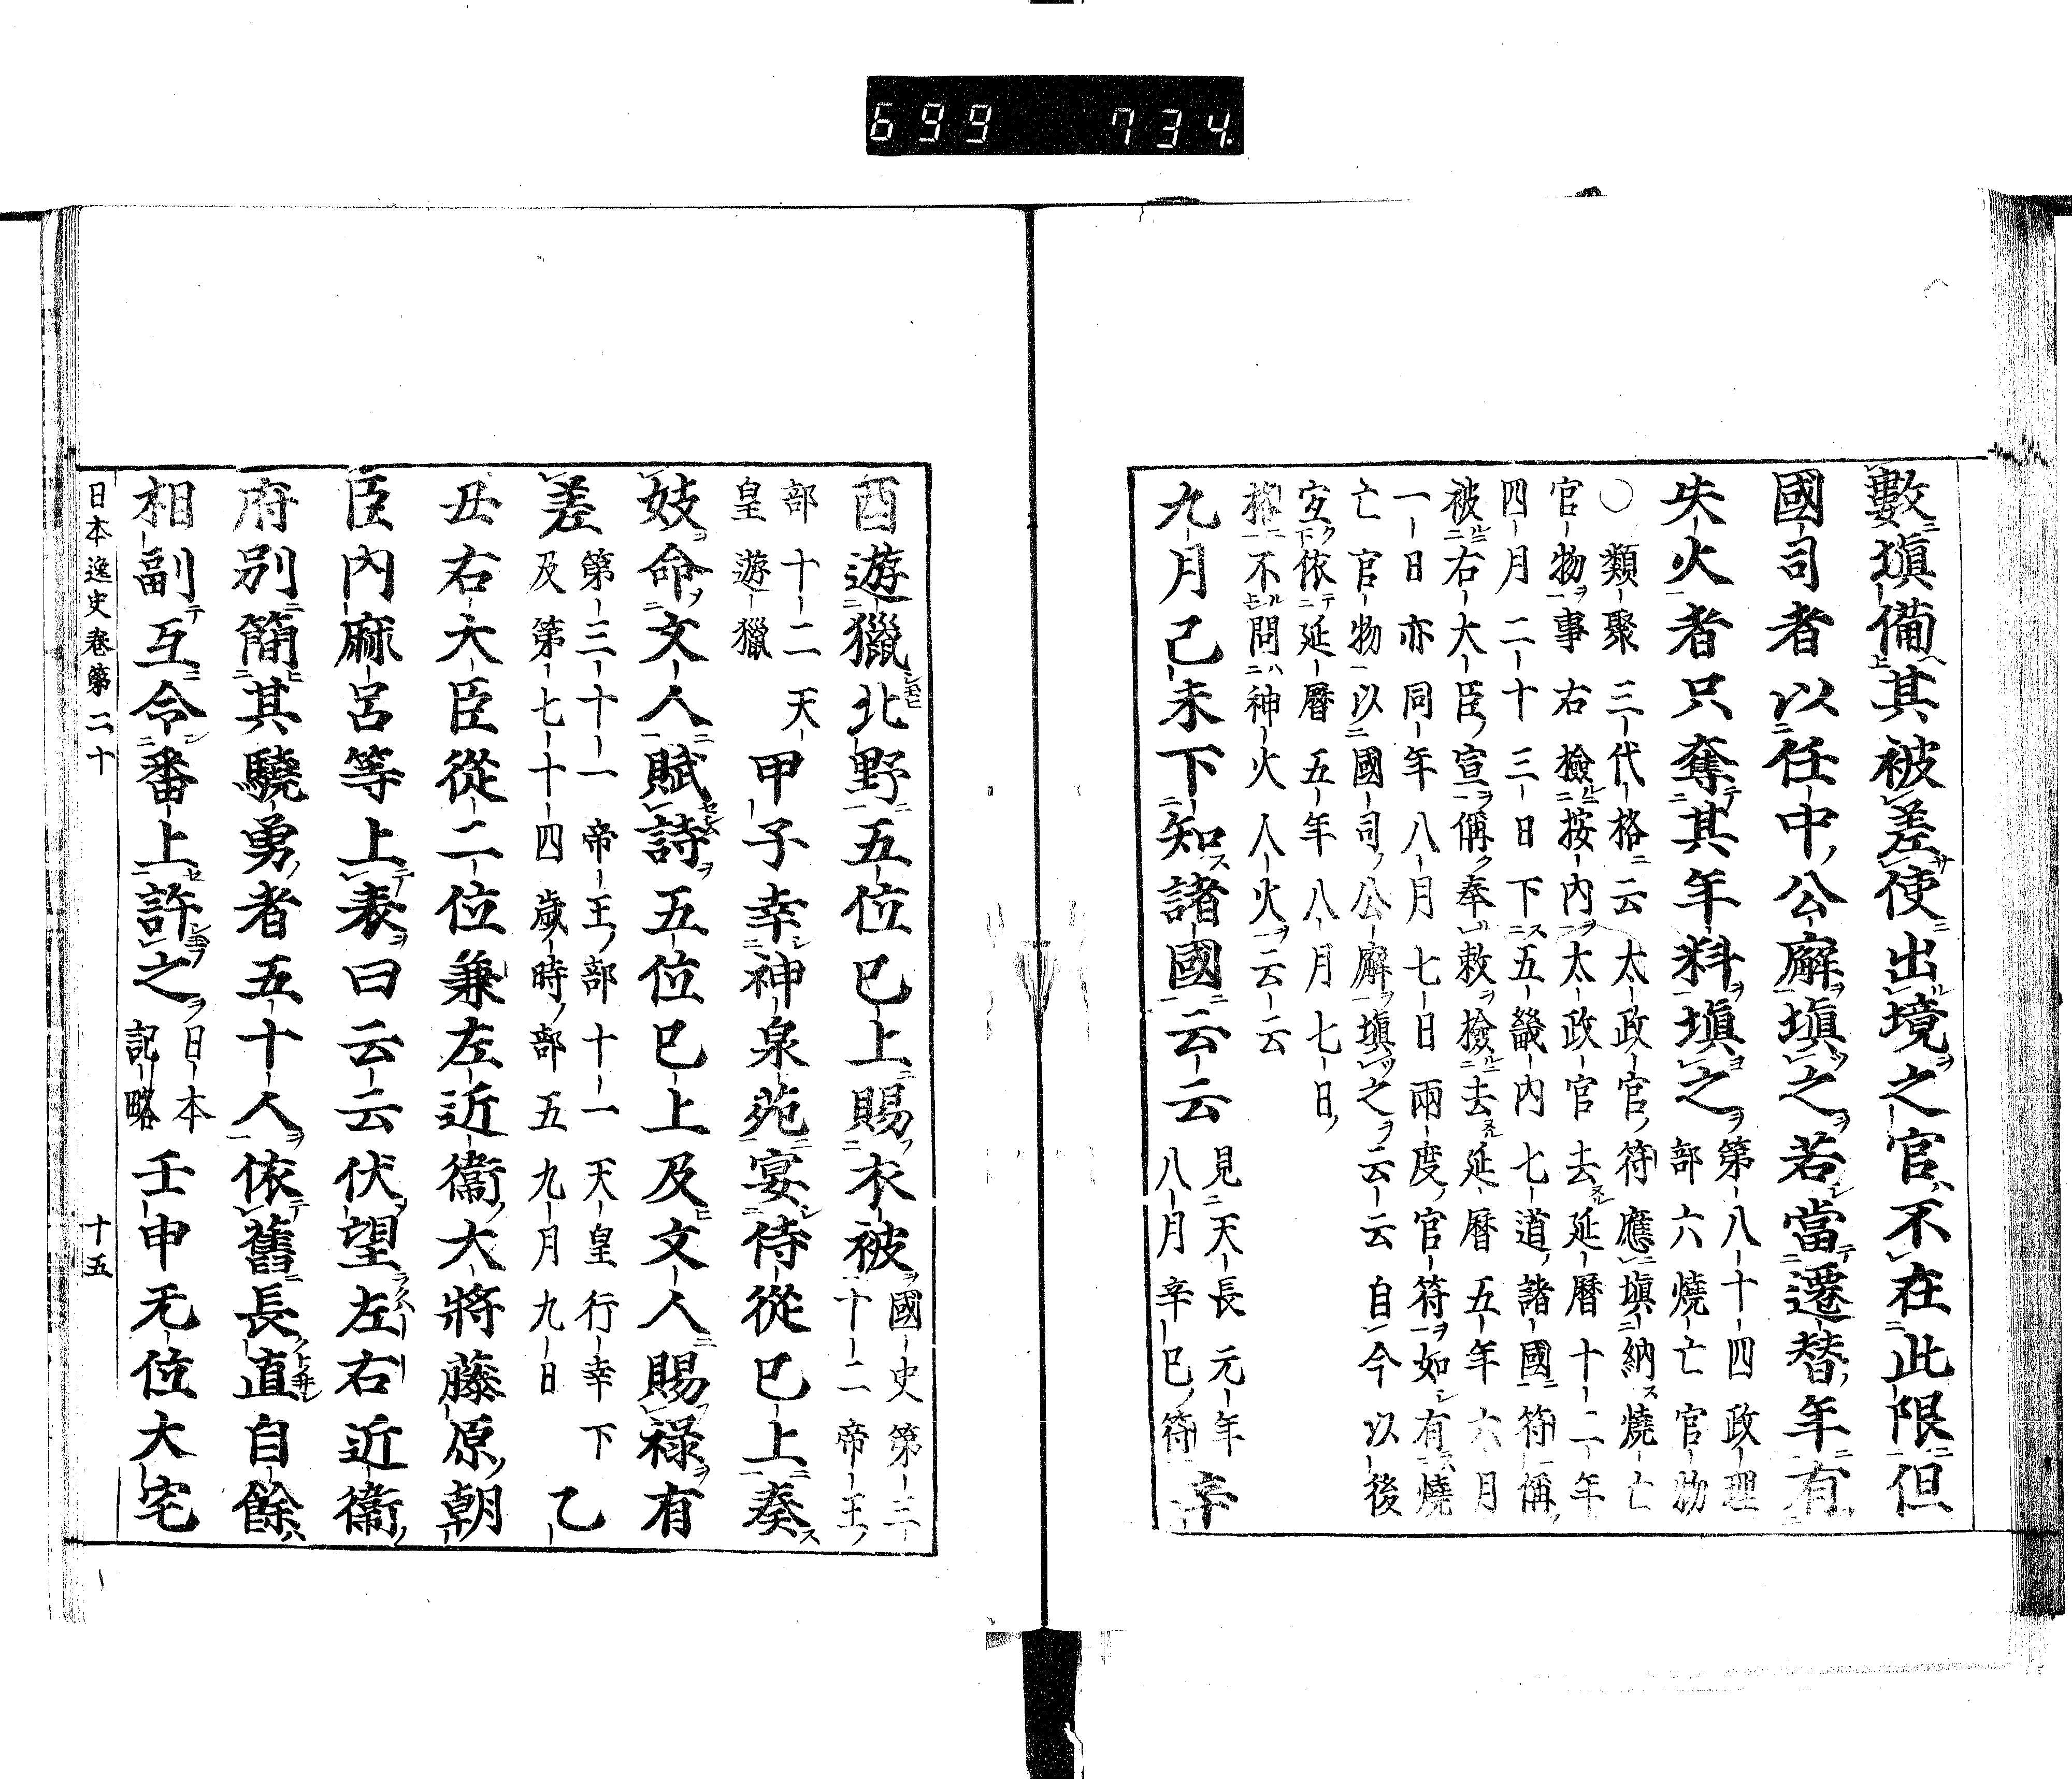 699 734.
數塡備其被差使出境之官不在此限但
國司者以任中公廨塡之若當遷替年有
失火者只奪其年料塡之第八十四政理
部六燒亡官物
○類聚三代格云太政官符應塡納燒亡
官物事右檢按內太政官去延曆十二年
四月二十三日下五畿內七道諸國符稱
被右大臣宣偁奉敕檢去延曆五年六月
一日亦同年八月七日兩度官符如有燒
亡官物以國司公廨塡之云云自今以後
宜依延曆五年八月七日
格不問神火人火云云
九月己未下知諸國云云見天長元年
八月辛巳符辛
酉遊獵北野五位已上賜衣被國史第三
十二帝王
部十二天
皇遊獵甲子幸神泉苑宴侍從已上奏
妓命文人賦詩五位已上及文人賜祿有
差第三十一帝王部十一天皇行幸下
及第七十四歲時部五九月九日乙
丑右大臣從二位兼左近衞大將藤原朝
臣內麻呂等上表曰云云伏望左右近衞
府別簡其驍勇者五十人依舊長直自餘
相副互令番上許之日本
記略壬申无位大宅
日本逸史卷第二十 十五